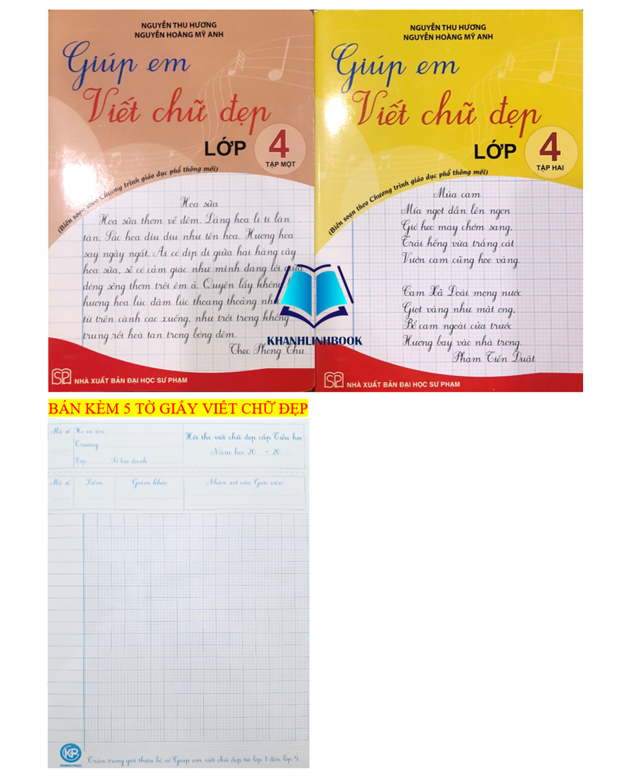 NGUYỄN THU HƯƠNG
NGUYỄN HOÀNG MỸ ANH
Giúp em
Viết chữ đẹp
LỚP 4
TẬP MỘT
(Biên soạn theo Chương trình giáo dục phổ thông mới)
Hoa sữa
Hoa sữa thơm về đêm. Dáng hoa li ti lan
tàn. Sắc hoa dìu dịu như tên hoa. Hương hoa
say ngây ngất. Ai có dịp đi giữa hai hàng cây
hoa sữa, sẽ có cảm giác như mình đang lội giữa
dòng sông thơm trôi êm ả. Quyện lấy không
hương hoa lúc đậm lúc thoang thoảng như
từ trên cành cao xuống, như trôi trong không
trung rồi hoà tan trong bóng đêm.
Theo Phong Thu
SP NHÀ XUẤT BẢN ĐẠI HỌC SƯ PHẠM
NGUYỄN THU HƯƠNG
NGUYỄN HOÀNG MỸ ANH
Giúp em
Viết chữ đẹp
LỚP 4
TẬP HAI
(Biên soạn theo Chương trình giáo dục phổ thông mới)
Mùa cam
Mía ngọt dần lên ngọn
Gió heo may chớm sang,
Trái hồng vừa trắng cát
Vườn cam cũng hoe vàng.
Cam Xã Đoài mọng nước
Giọt vàng như mật ong,
Bổ cam ngoài cửa trước
Hương bay vào nhà trong.
Phạm Tiến Duật
SP NHÀ XUẤT BẢN ĐẠI HỌC SƯ PHẠM
KHANHLINHBOOK
BÁN KÈM 5 TỜ GIẤY VIẾT CHỮ ĐẸP
Mã số Họ và tên:
Trường:
Lớp: Số báo danh:
Hội thi viết chữ đẹp cấp Tiểu học
Năm học 20 - 20
Mã số Điểm Giám khảo Nhận xét của Giáo viên
KP
Trân trọng giới thiệu bộ vở Giúp em viết chữ đẹp từ lớp 1 đến lớp 5